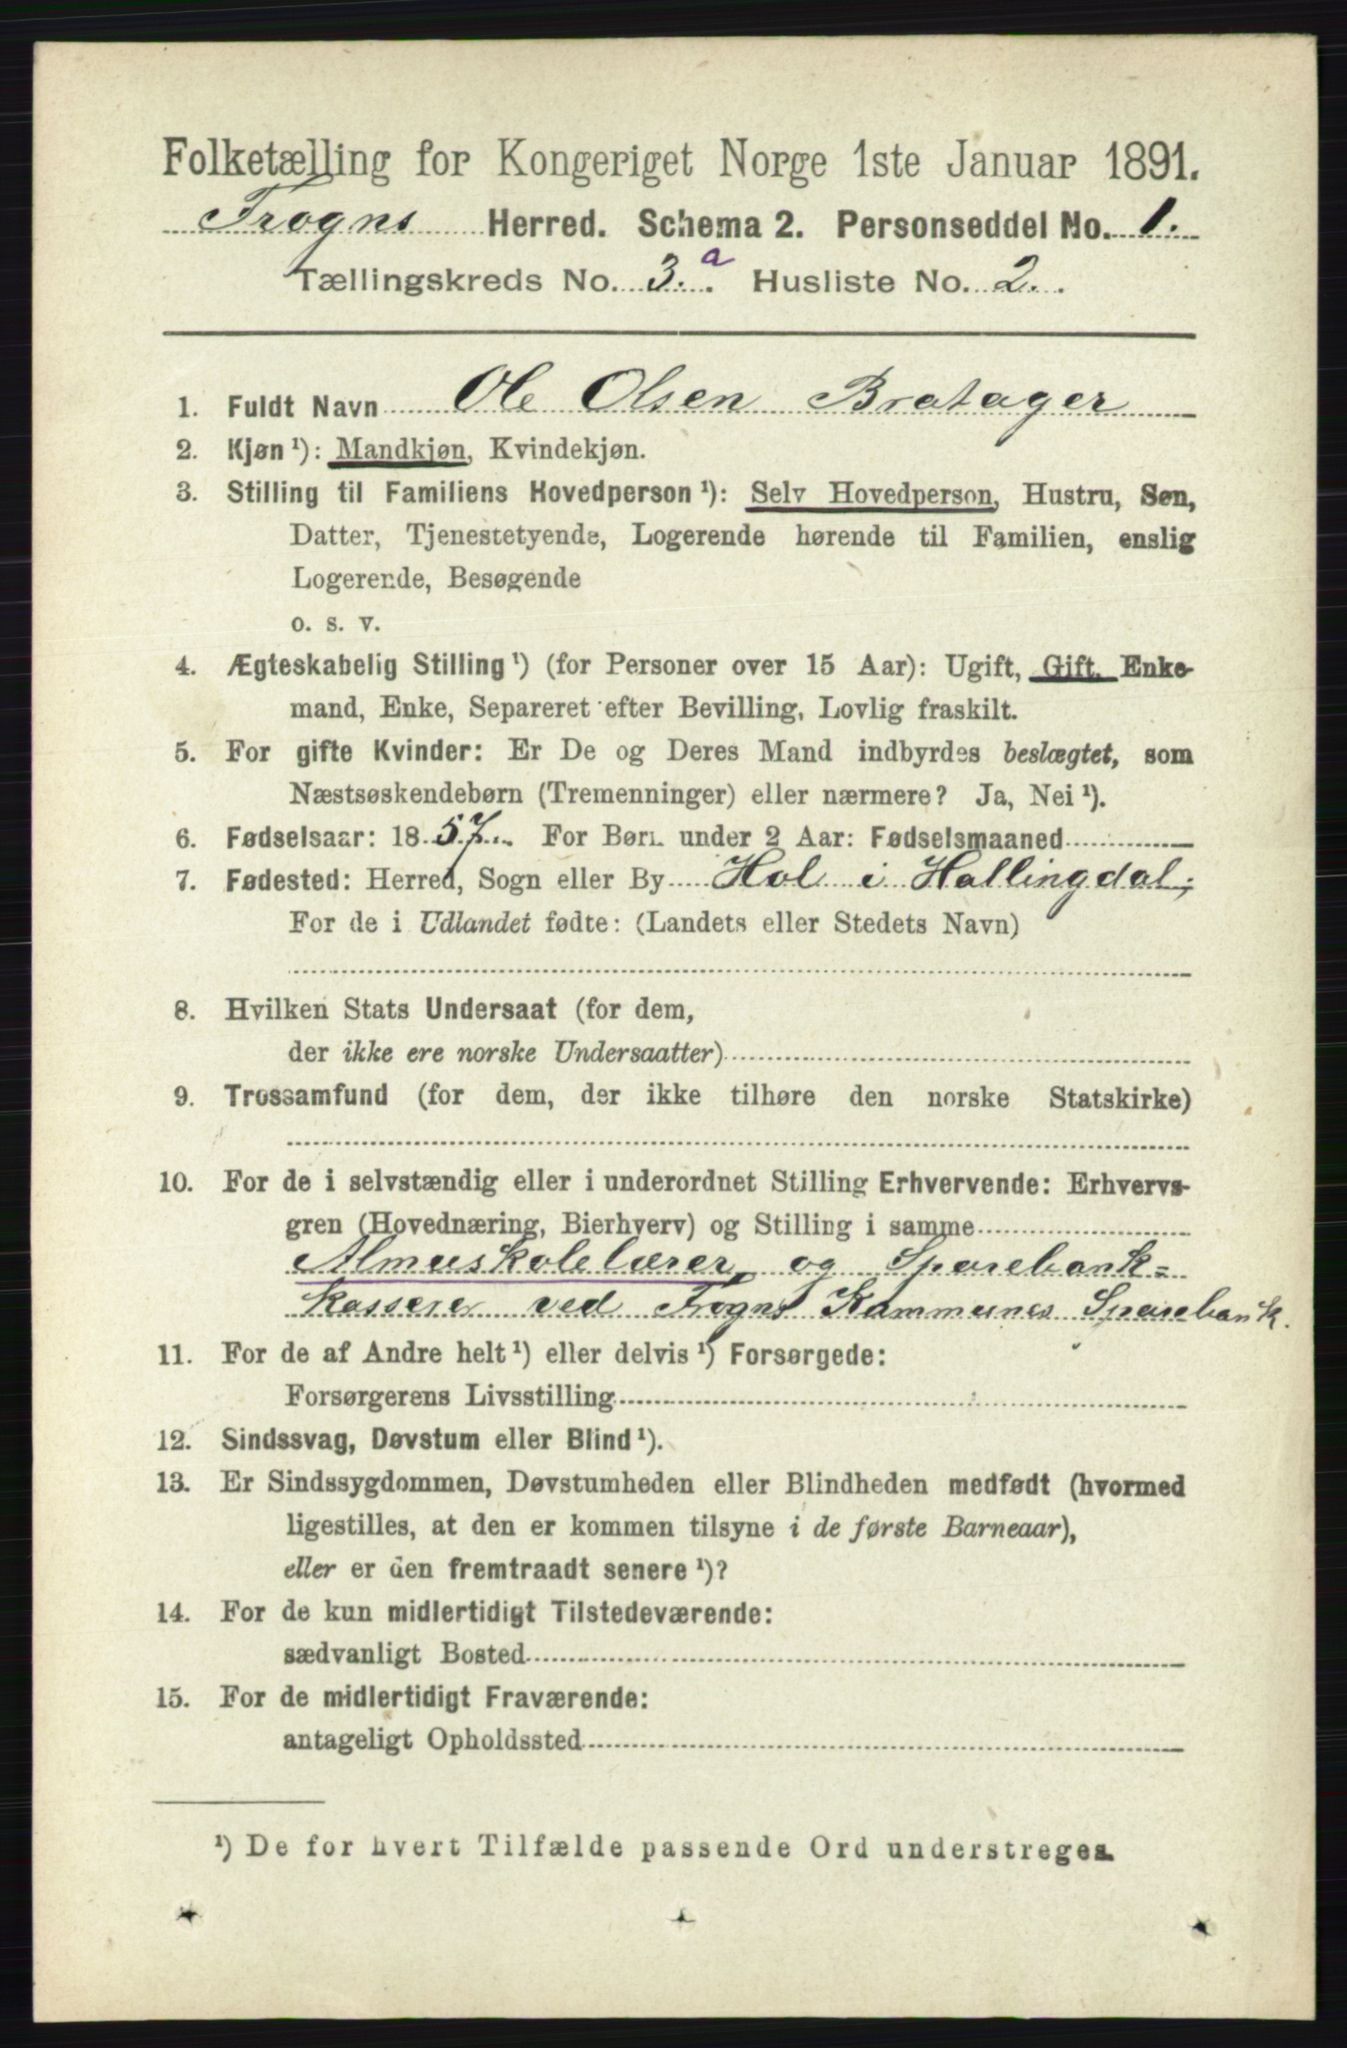 Folketælling for Kongeriget Norge 1ste Januar 1891.
Frogns Herred. Schema 2. Personseddel No. 1.
Tællingskreds No. 3.a Husliste No. 2.
1. Fuldt Navn Ole Olsen Bratager
2. Kjøn ¹): Mandkjøn, Kvindekjøn.
3. Stilling til Familiens Hovedperson ¹): Selv Hovedperson, Hustru, Søn,
Datter, Tjenestetyende, Logerende hørende til Familien, enslig
Logerende, Besøgende
o. s. v.
4. Ægteskabelig Stilling ¹) (for Personer over 15 Aar): Ugift, Gift, Enke-
mand, Enke, Separeret efter Bevilling, Lovlig fraskilt.
5. For gifte Kvinder: Er De og Deres Mand indbyrdes beslægtet, som
Næstsøskendebørn (Tremenninger) eller nærmere? Ja, Nei ¹).
6. Fødselsaar: 1857. For Børn under 2 Aar: Fødselsmaaned
7. Fødested: Herred, Sogn eller By Hol i Hallingdal;
For de i Udlandet fødte: (Landets eller Stedets Navn)
8. Hvilken Stats Undersaat (for dem,
der ikke ere norske Undersaatter)
9. Trossamfund (for dem, der ikke tilhøre den norske Statskirke)
10. For de i selvstændig eller i underordnet Stilling Erhvervende: Erhvervs-
gren (Hovednæring, Bierhverv) og Stilling i samme
Almueskolelærer og Sparebank=
kasserer ved Frogns Kommunes Sparebank.
11. For de af Andre helt ¹) eller delvis ¹) Forsørgede:
Forsørgerens Livsstilling
12. Sindssvag, Døvstum eller Blind ¹).
13. Er Sindssygdommen, Døvstumheden eller Blindheden medfødt (hvormed
ligestilles, at den er kommen tilsyne i de første Barneaar),
eller er den fremtraadt senere ¹)?
14. For de kun midlertidigt Tilstedeværende:
sædvanligt Bosted
15. For de midlertidigt Fraværende:
antageligt Opholdssted
¹) De for hvert Tilfælde passende Ord understreges.